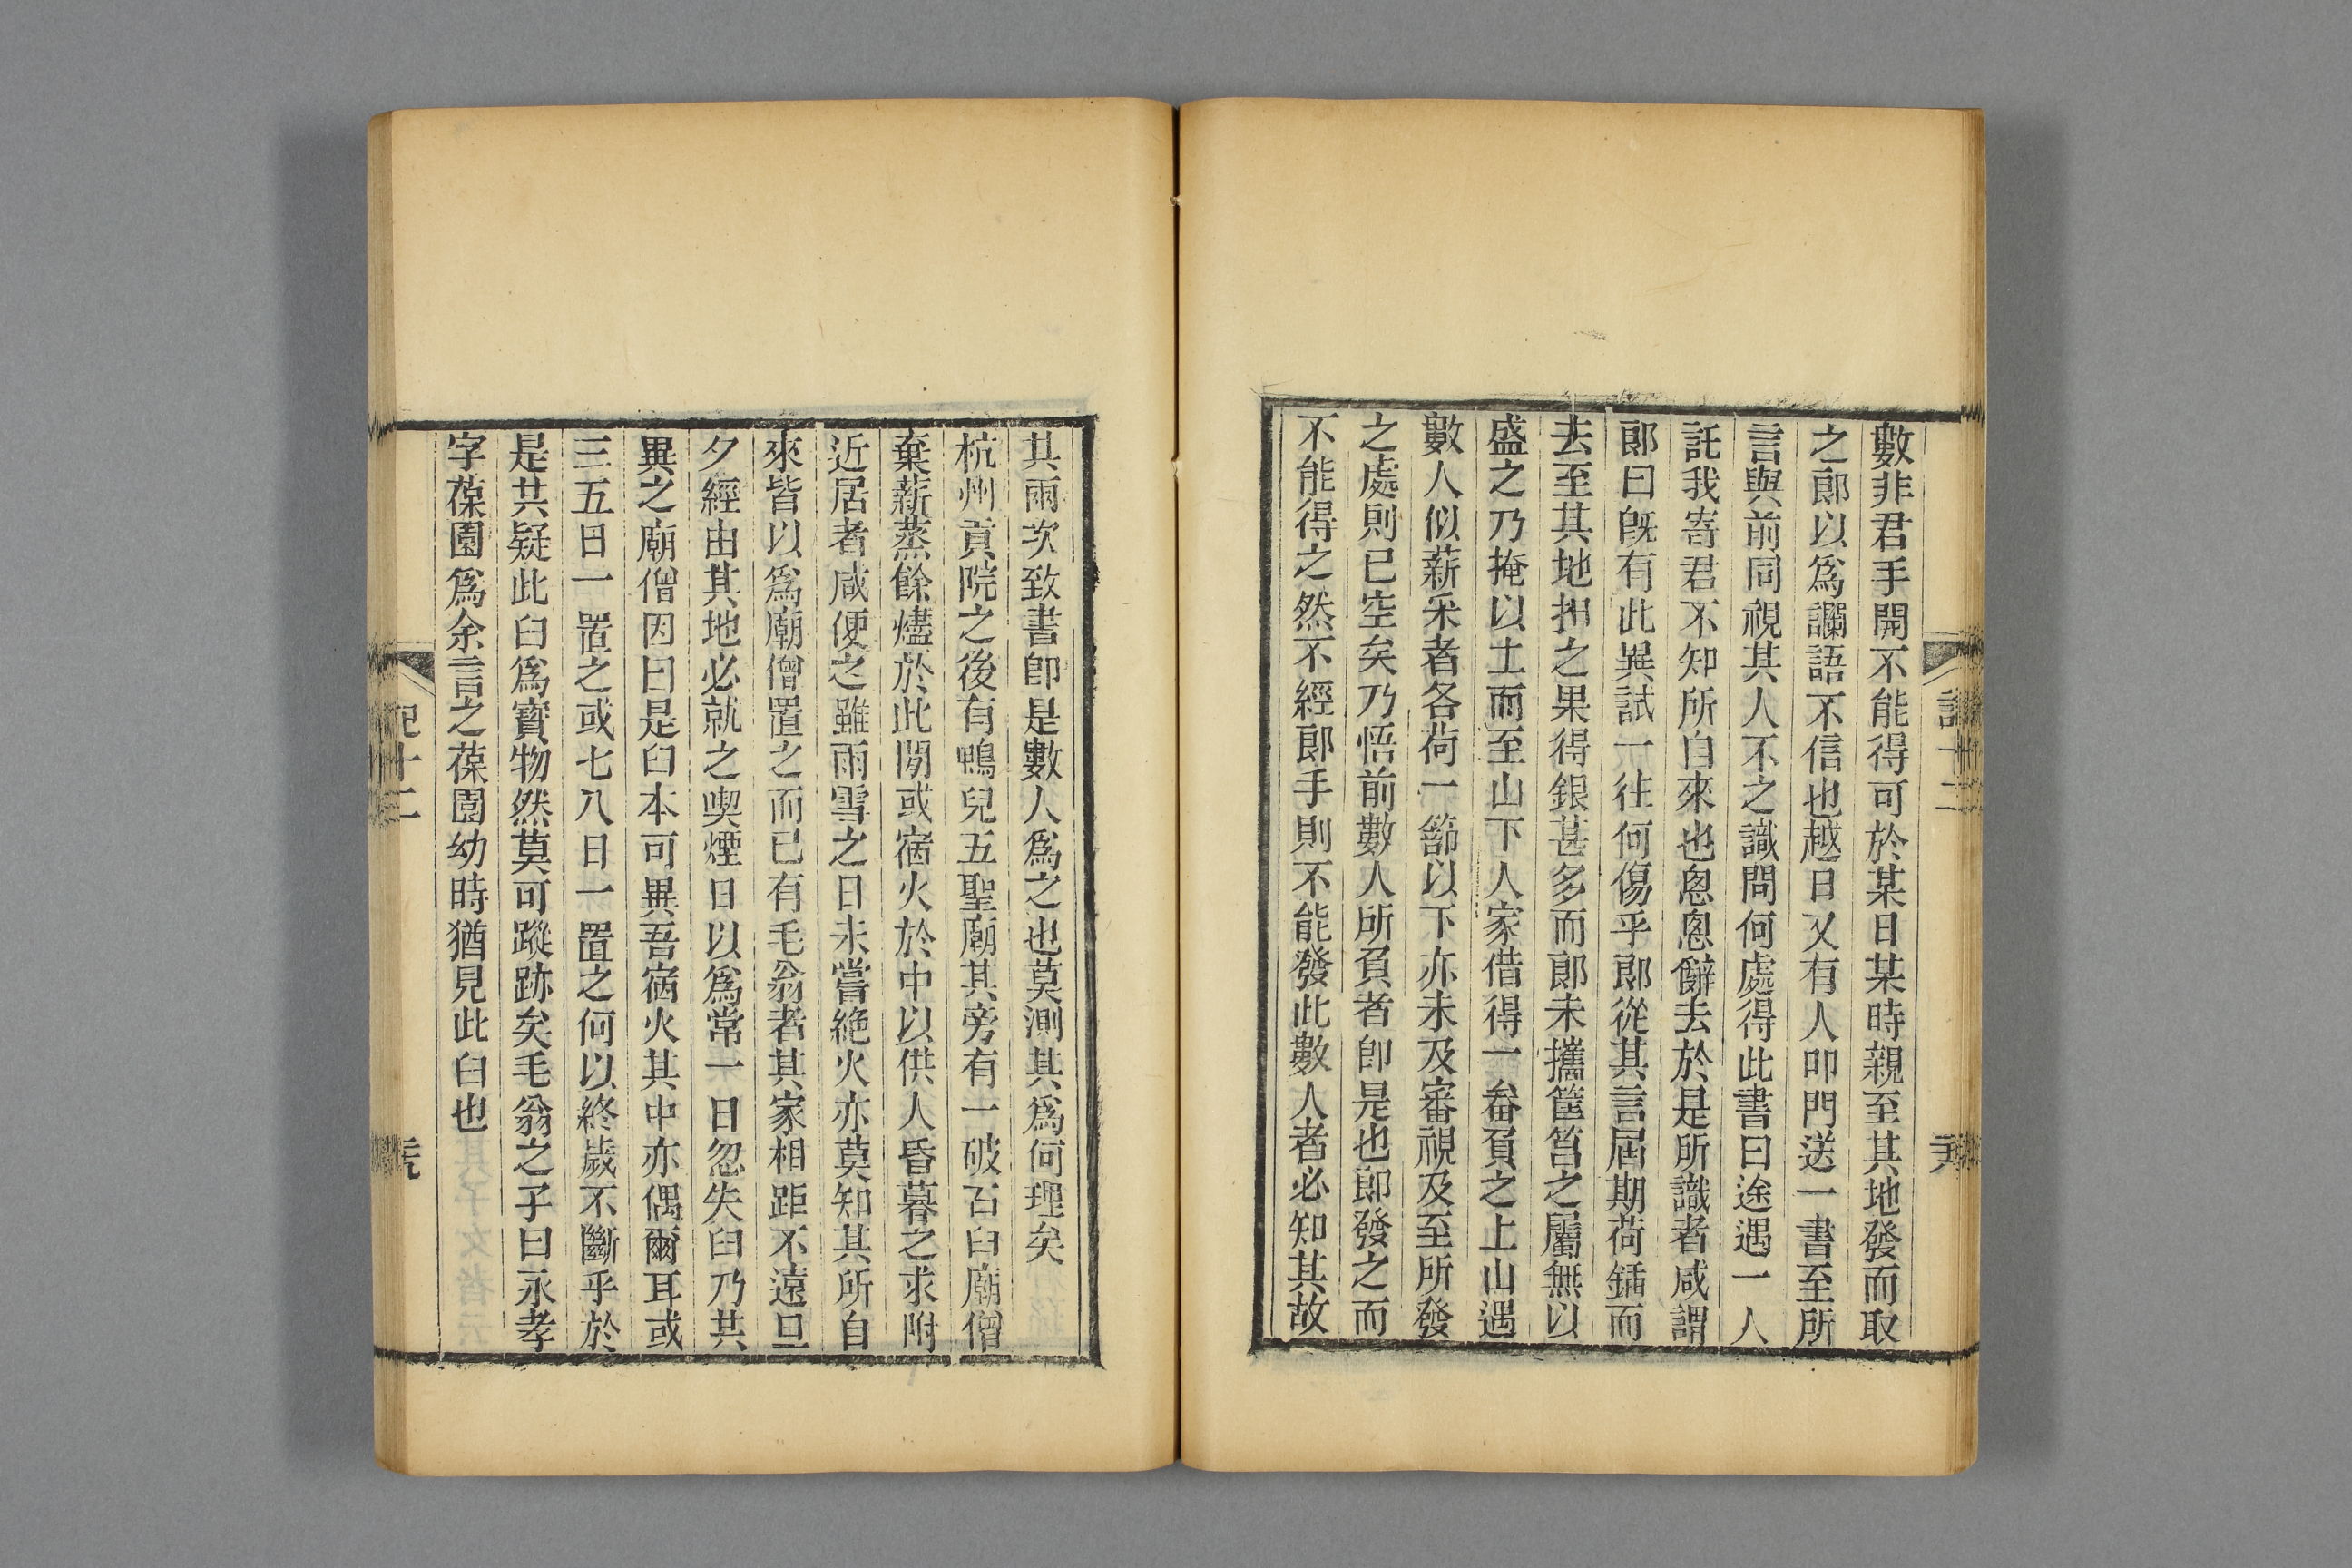 數非君手開不能得可於某日某時親至其地發而取
之郎以爲讕語不信也越日又有人叩門送一書至所
言與前同視其人不之識問何處得此書曰途遇一人
託我寄君不知所自來也悤悤辭去於是所識者咸謂
郎曰旣有此異試一往何傷乎郎從其言屆期荷鍤而
去至其地抇之果得銀甚多而郎未攜筐筥之屬無以
盛之乃掩以土而至山下人家借得一畚負之上山遇
數人似薪采者各荷一篰以下亦未及審視及至所發
之處則已空矣乃悟前數人所負者卽是也郎發之而
不能得之然不經郎手則不能發此數人者必知其故
其兩次致書卽是數人爲之也莫測其爲何理矣
杭州貢院之後有鴨兒五聖廟其旁有一破石臼廟僧
棄薪蒸餘燼於此閒或宿火於中以供人昏暮之求附
近居者咸便之雖雨雪之日未嘗絶火亦莫知其所自
來皆以爲廟僧置之而已有毛翁者其家相距不遠旦
夕經由其地必就之喫煙日以爲常一日忽失臼乃共
異之廟僧因曰是臼本可異吾宿火其中亦偶爾耳或
三五日一置之或七八日一置之何以終歲不斷乎於
是共疑此臼爲寶物然莫可蹤跡矣毛翁之子曰永孝
字葆園爲余言之葆園幼時猶見此臼也